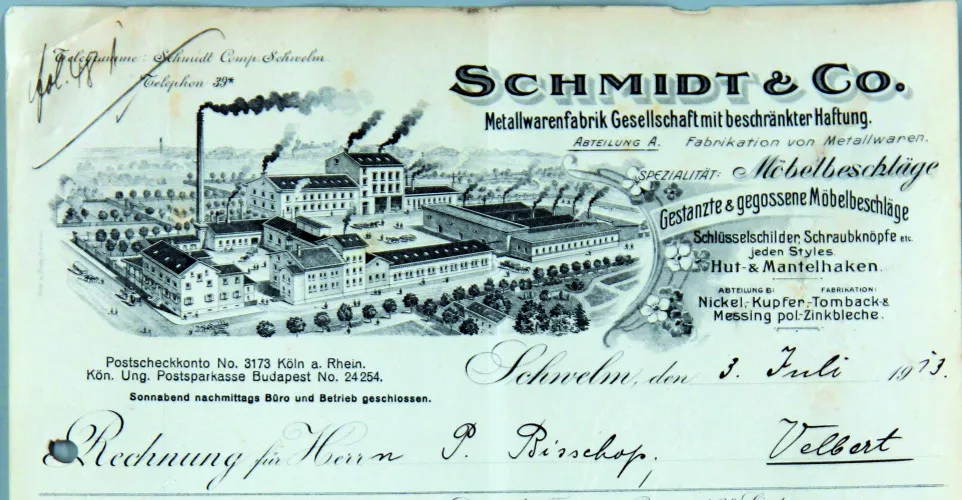 fol. 48
Telegramme: Schmidt Comp. Schwelm.
Telephon 39*
SCHMIDT & CO.
Metallwarenfabrik Gesellschaft mit beschränkter Haftung.
ABTEILUNG A. Fabrikation von Metallwaren.
SPEZIALITÄT: Möbelbeschläge
Gestanzte & gegossene Möbelbeschläge
Schlüsselschilder, Schraubknöpfe etc.
jeden Styles.
Hut- & Mantelhaken.
ABTEILUNG B: FABRIKATION:
Nickel-, Kupfer-, Tomback- &
Messing pol.-Zinkbleche.
Postscheckkonto No. 3173 Köln a. Rhein.
Kön. Ung. Postsparkasse Budapest No. 24254.
Sonnabend nachmittags Büro und Betrieb geschlossen.
Schwelm, den 3. Juli 1913.
Rechnung für Herrn P. Bisschop, Velbert